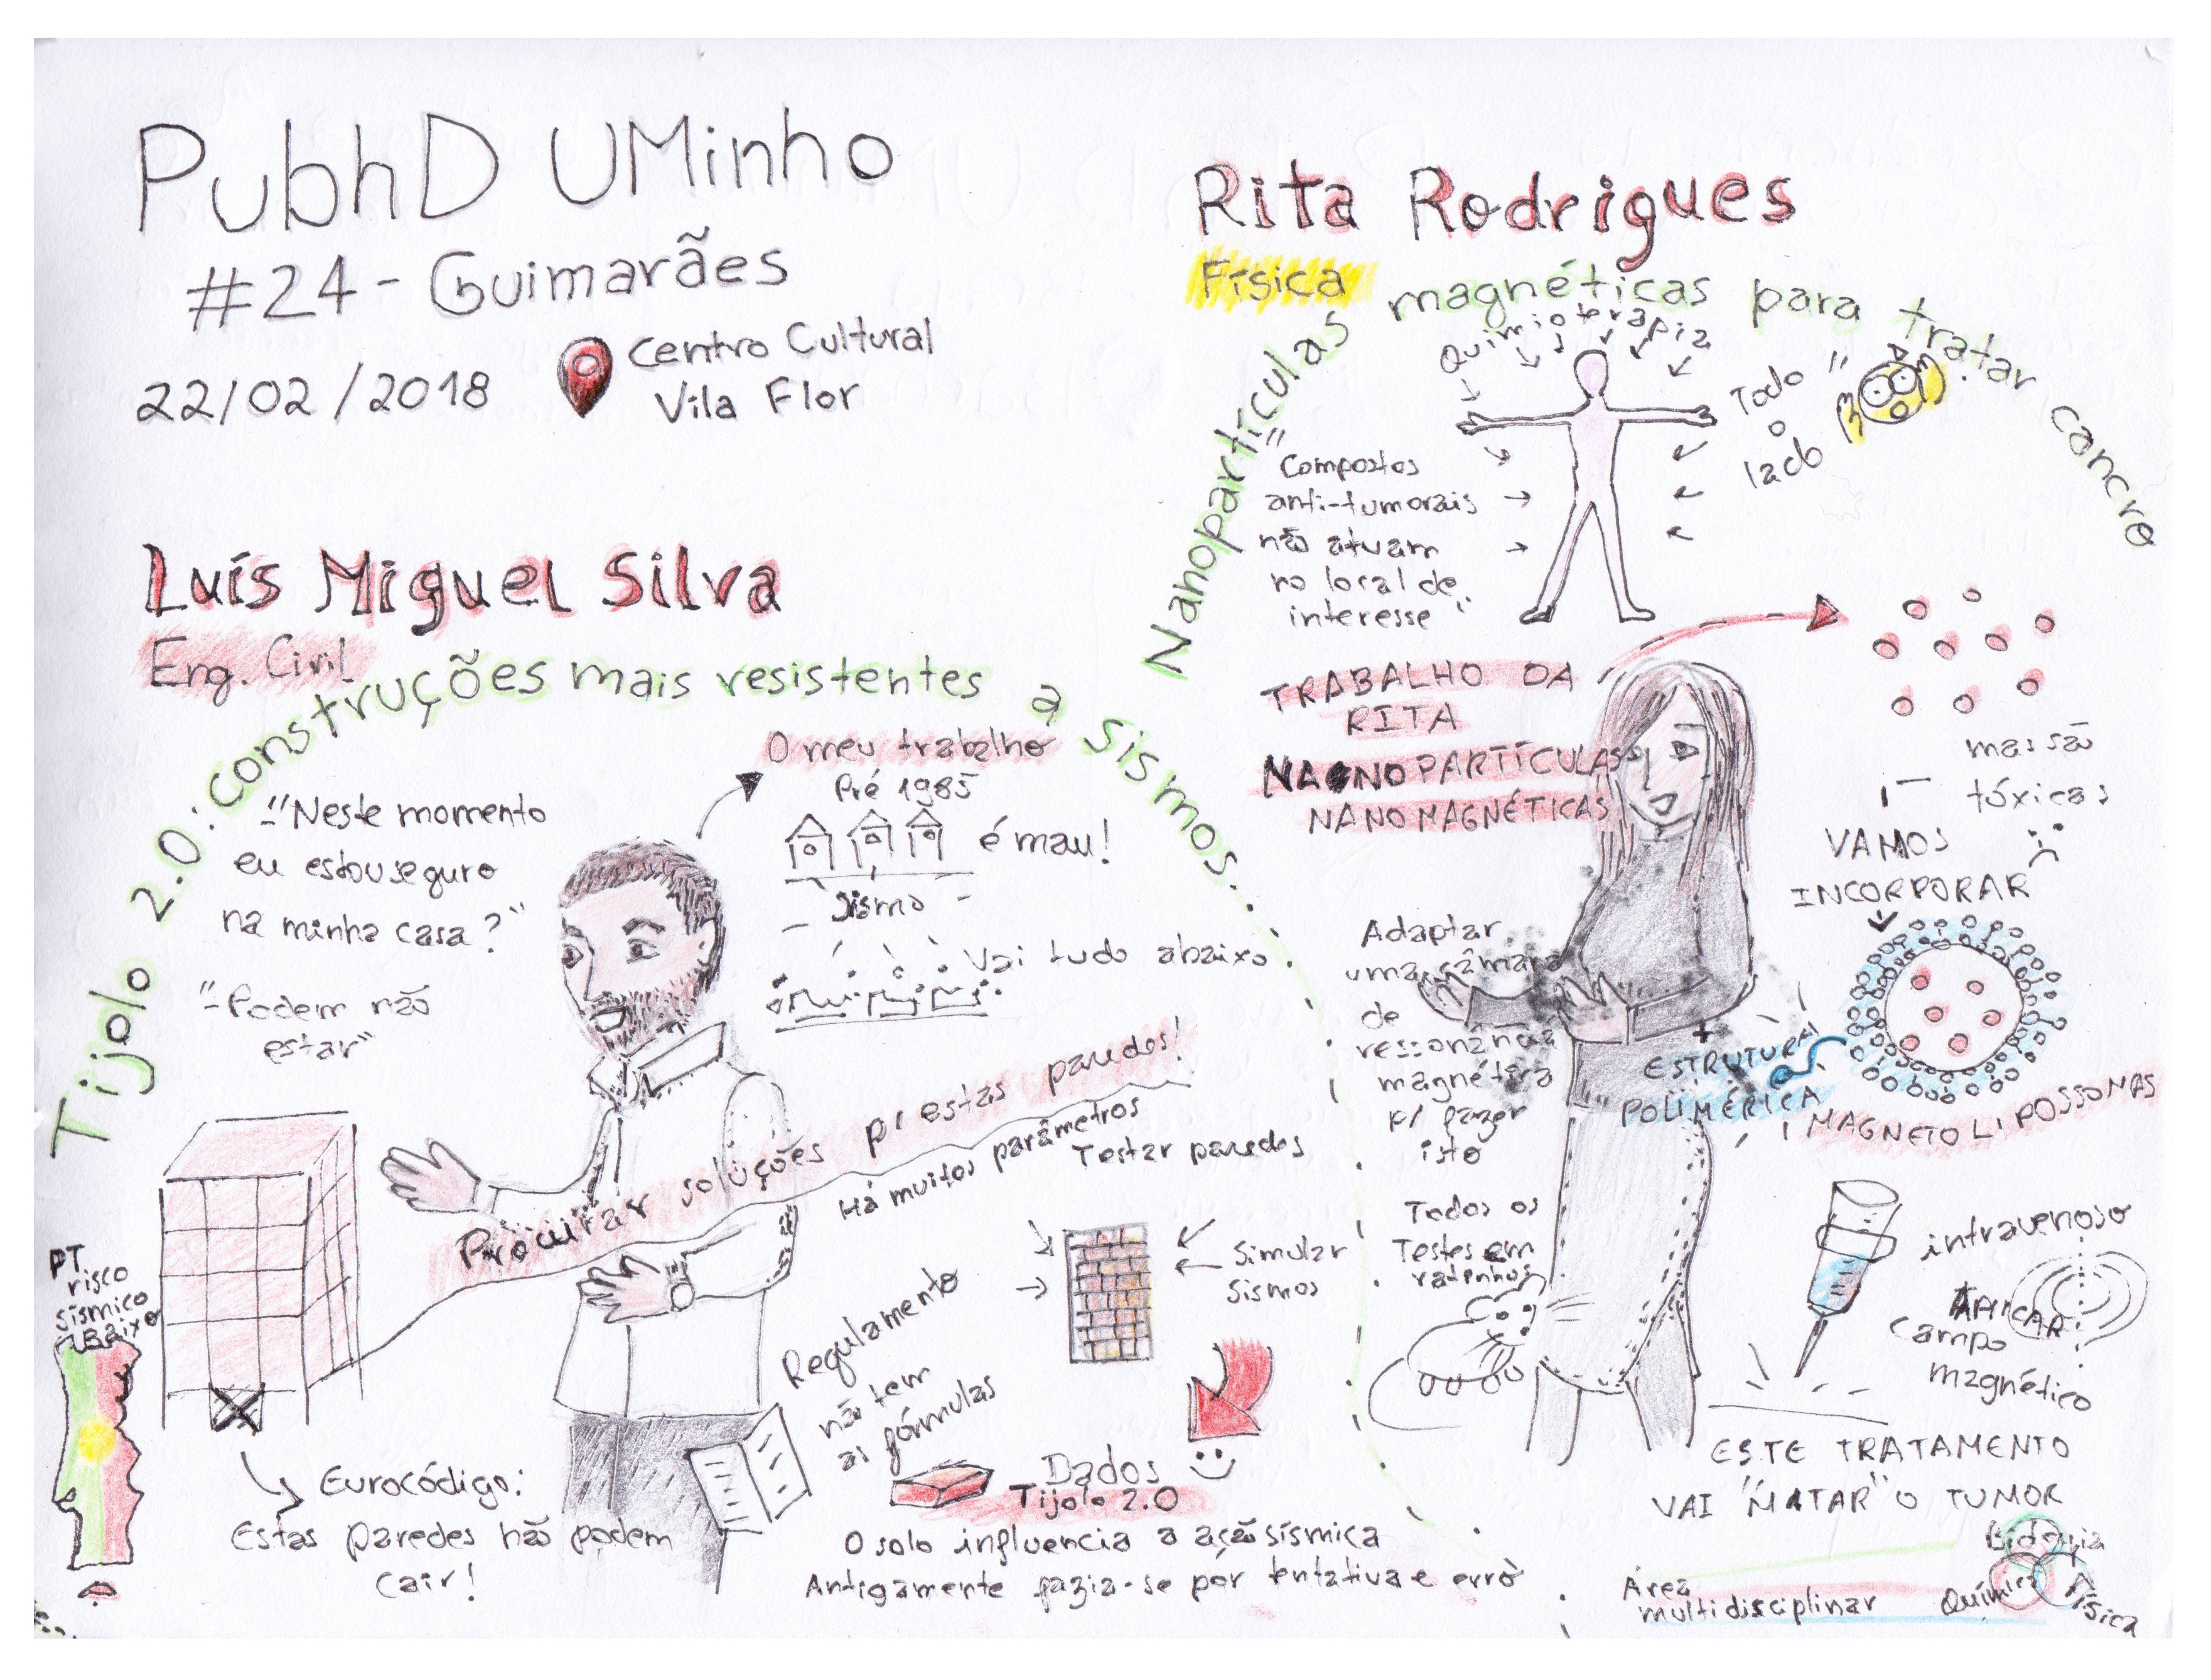 PubhD UMinho
#24 - Guimarães
22/02/2018
Centro Cultural
Vila Flor
Luís Miguel Silva
Eng. Civil
Tijolo 2.0: construções mais resistentes a sismos...
-"Neste momento
eu estou seguro
na minha casa?"
"-Podem não
estar"
O meu trabalho
Pré 1985
é mau!
Sismo
Vai tudo abaixo
Procurar soluções p/ estas paredes!
Há muitos parâmetros
Testar paredes
Simular
Sismos
PT
risco
sísmico
Baixo
Eurocódigo:
Estas paredes não podem
cair!
Regulamento
não tem
as fórmulas
Dados
Tijolo 2.0
O solo influencia a ação sísmica
Antigamente fazia-se por tentativa e erro
Rita Rodrigues
Física
Nanopartículas magnéticas para tratar cancro
Quimioterapia
Todo
o
lado
"Compostos
anti-tumorais
não atuam
no local de
interesse"
TRABALHO DA
RITA
NANOPARTÍCULAS
NANOMAGNÉTICAS
mas são
tóxicas
VAMOS
INCORPORAR
Adaptar
uma câmara
de
ressonância
magnética
p/ fazer
isto
ESTRUTURA
POLIMÉRICA
MAGNETOLIPOSSOMAS
Todos os
Testes em
ratinhos
intravenoso
APLICAR
campo
magnético
ESTE TRATAMENTO
VAI "MATAR" O TUMOR
Área
multidisciplinar
Biologia
Química
Física